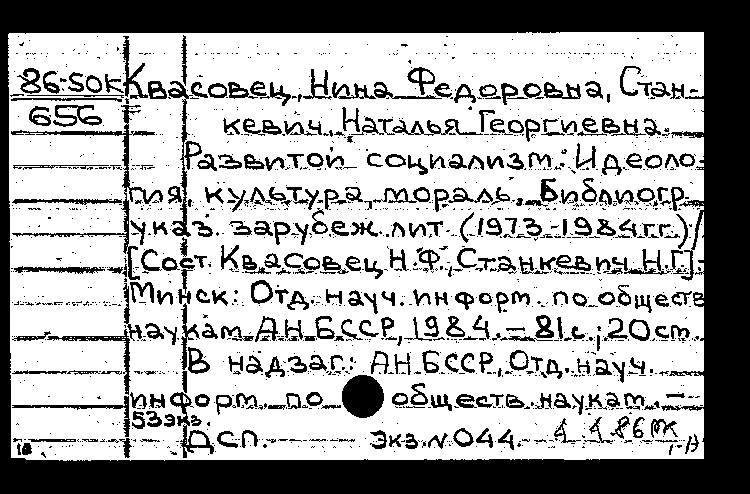 86-50К Квасовец, Нина Федоровна, Стан-
656 кевич, Наталья Георгиевна.
Развитой социализм: Идеоло-
гия, культура, мораль. Библиогр.
указ. зарубеж. лит. (1973-1984 гг.)/
[Сост. Квасовец Н.Ф., Станкевич Н.Г.].-
Минск: Отд. науч. информ. по обществ.
наукам АН БССР, 1984. - 81 с.; 20 см.
В надзаг.: АН БССР, Отд. науч.
информ. по обществ. наукам. -
53 экз.
ДСП. Экз. N 044.